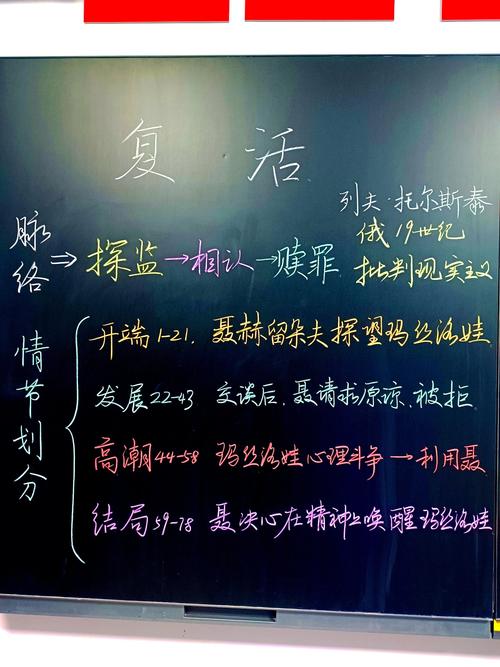 复 活
列夫·托尔斯泰
俄 19世纪
批判现实主义
脉络 ⇒ 探监→相认→赎罪
情节划分
开端1-21. 聂赫留朵夫探望玛丝洛娃
发展22-43 交谈后.聂请求原谅.被拒
高潮44-58 玛丝洛娃心理斗争→利用聂
结局59-78 聂决心在精神上唤醒玛丝洛娃